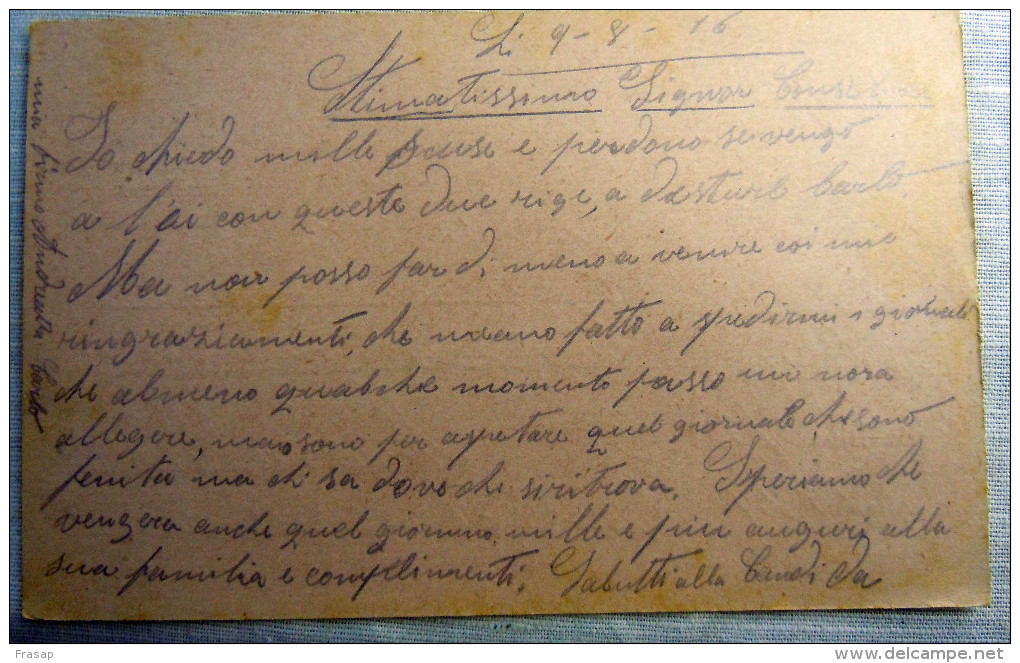 Li 9-8-16
Stimatissimo Signor
Io chiedo mille scuse e perdono se vengo
a l'ei con queste due rige, a disturbarlo
Ma non posso far di meno a venire coi mie
ringraziamenti, che mano fatto a spedirmi i giornale
che almeno qualche momento passo un nora
allegere, ma sono per aspetare quel giornale che sono
fenita ma chi sa dove che si ritrova. Speriamo che
vengera anche quel giorno, mille e piu auguri alla
sua familia e complimenti. Salutti alla Candida
mia firmo Andreatta Carlo
Frasap
delcampe.net